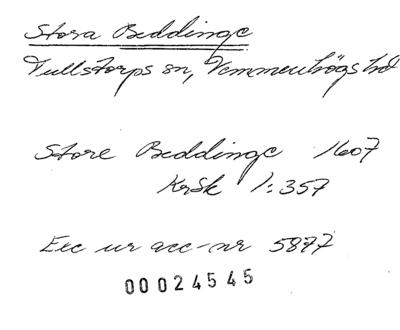 Stora Beddinge
Tullstorps sn, Vemmenhögs hd
Store Beddinge 1607
KrSk 1:357
Exc ur acc-nr 5877
00024545